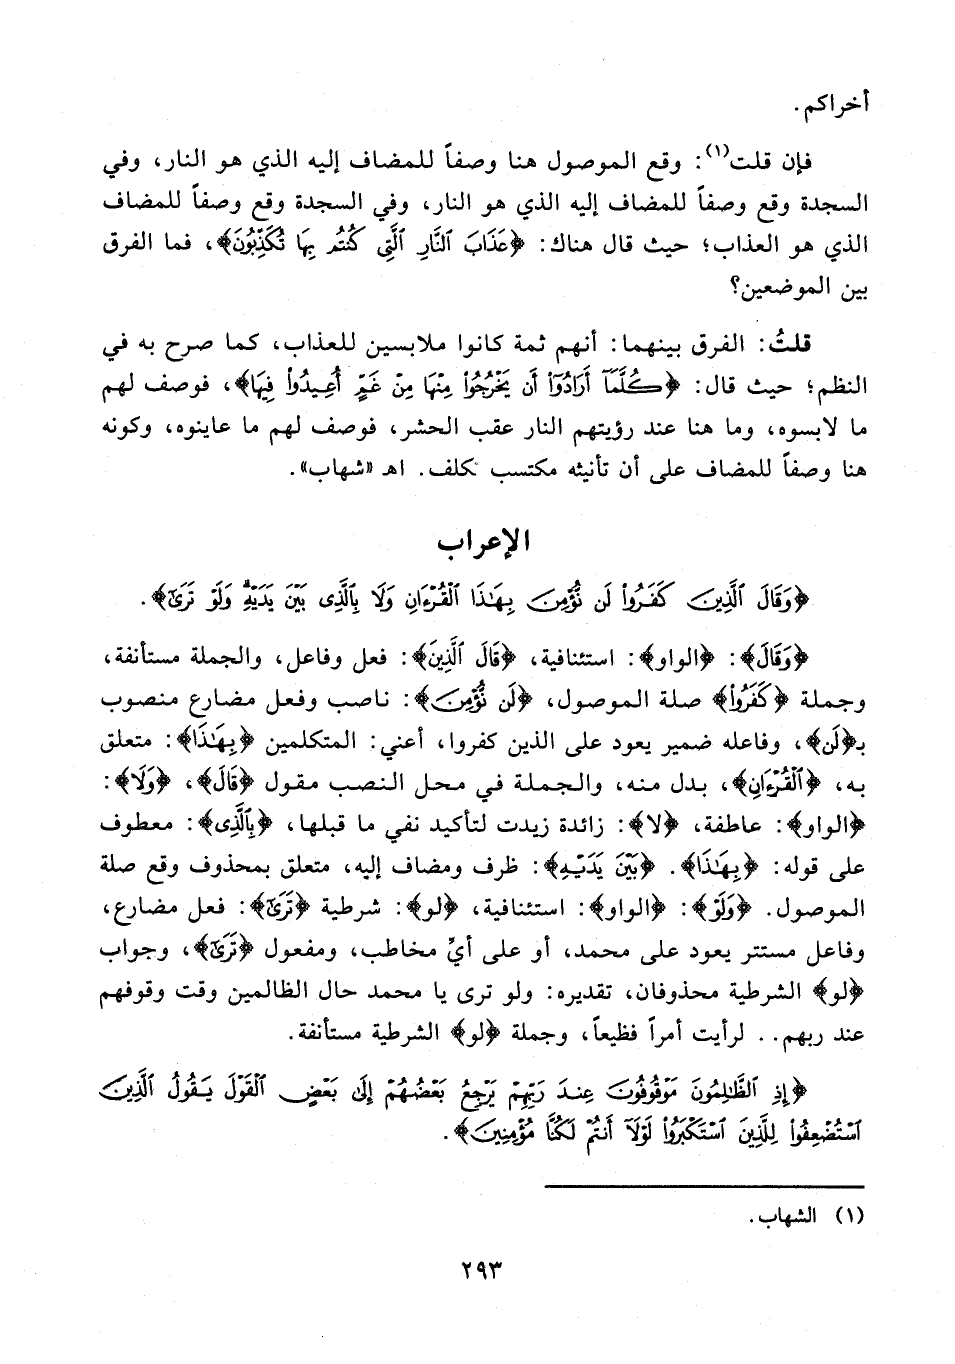 أخراكم.
فإن قلت(١): وقع الموصول هنا وصفاً للمضاف إليه الذي هو النار، وفي
السجدة وقع وصفاً للمضاف إليه الذي هو النار، وفي السجدة وقع وصفاً للمضاف
الذي هو العذاب؛ حيث قال هناك: ﴿عَذَابَ ٱلنَّارِ ٱلَّتِى كُنتُم بِهَا تُكَذِّبُونَ﴾، فما الفرق
بين الموضعين؟
قلتُ: الفرق بينهما: أنهم ثمة كانوا ملابسين للعذاب، كما صرح به في
النظم؛ حيث قال: ﴿كُلَّمَآ أَرَادُوٓاْ أَن يَخْرُجُواْ مِنْهَا مِنْ غَمٍّ أُعِيدُواْ فِيهَا﴾، فوصف لهم
ما لابسوه، وما هنا عند رؤيتهم النار عقب الحشر، فوصف لهم ما عاينوه، وكونه
هنا وصفاً للمضاف على أن تأنيثه مكتسب تكلف. اهـ «شهاب».
الإعراب
﴿وَقَالَ ٱلَّذِينَ كَفَرُواْ لَن نُّؤْمِنَ بِهَـٰذَا ٱلْقُرْءَانِ وَلَا بِٱلَّذِى بَيْنَ يَدَيْهِۗ وَلَوْ تَرَىٰٓ﴾.
﴿وَقَالَ﴾: ﴿الواو﴾: استئنافية، ﴿قَالَ ٱلَّذِينَ﴾: فعل وفاعل، والجملة مستأنفة،
وجملة ﴿كَفَرُواْ﴾ صلة الموصول، ﴿لَن نُّؤْمِنَ﴾: ناصب وفعل مضارع منصوب
بـ﴿لَن﴾، وفاعله ضمير يعود على الذين كفروا، أعني: المتكلمين ﴿بِهَـٰذَا﴾: متعلق
به، ﴿ٱلْقُرْءَانِ﴾، بدل منه، والجملة في محل النصب مقول ﴿قَالَ﴾، ﴿وَلَا﴾:
﴿الواو﴾: عاطفة، ﴿لا﴾: زائدة زيدت لتأكيد نفي ما قبلها، ﴿بِٱلَّذِى﴾: معطوف
على قوله: ﴿بِهَـٰذَا﴾. ﴿بَيْنَ يَدَيْهِ﴾: ظرف ومضاف إليه، متعلق بمحذوف وقع صلة
الموصول. ﴿وَلَوْ﴾: ﴿الواو﴾: استئنافية، ﴿لو﴾: شرطية ﴿تَرَىٰٓ﴾: فعل مضارع،
وفاعل مستتر يعود على محمد، أو على أيِّ مخاطب، ومفعول ﴿تَرَىٰٓ﴾، وجواب
﴿لو﴾ الشرطية محذوفان، تقديره: ولو ترى يا محمد حال الظالمين وقت وقوفهم
عند ربهم.. لرأيت أمراً فظيعاً، وجملة ﴿لو﴾ الشرطية مستأنفة.
﴿إِذِ ٱلظَّـٰلِمُونَ مَوْقُوفُونَ عِندَ رَبِّهِمْ يَرْجِعُ بَعْضُهُمْ إِلَىٰ بَعْضٍ ٱلْقَوْلَ يَقُولُ ٱلَّذِينَ
ٱسْتُضْعِفُواْ لِلَّذِينَ ٱسْتَكْبَرُواْ لَوْلَآ أَنتُمْ لَكُنَّا مُؤْمِنِينَ﴾.
(١) الشهاب.
٢٩٣